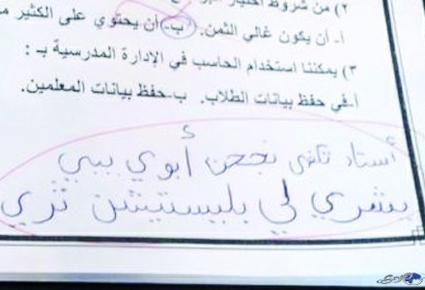 ٢) من شروط اختيار
أ- أن يكون غالي الثمن. ب- أن يحتوي على الكثير
٣) يمكننا استخدام الحاسب في الإدارة المدرسية بـ :
أ-في حفظ بيانات الطلاب. ب-حفظ بيانات المعلمين.
أستاد تكفى نجحن أبوي يبي
يشري لي بليستيشن ثري